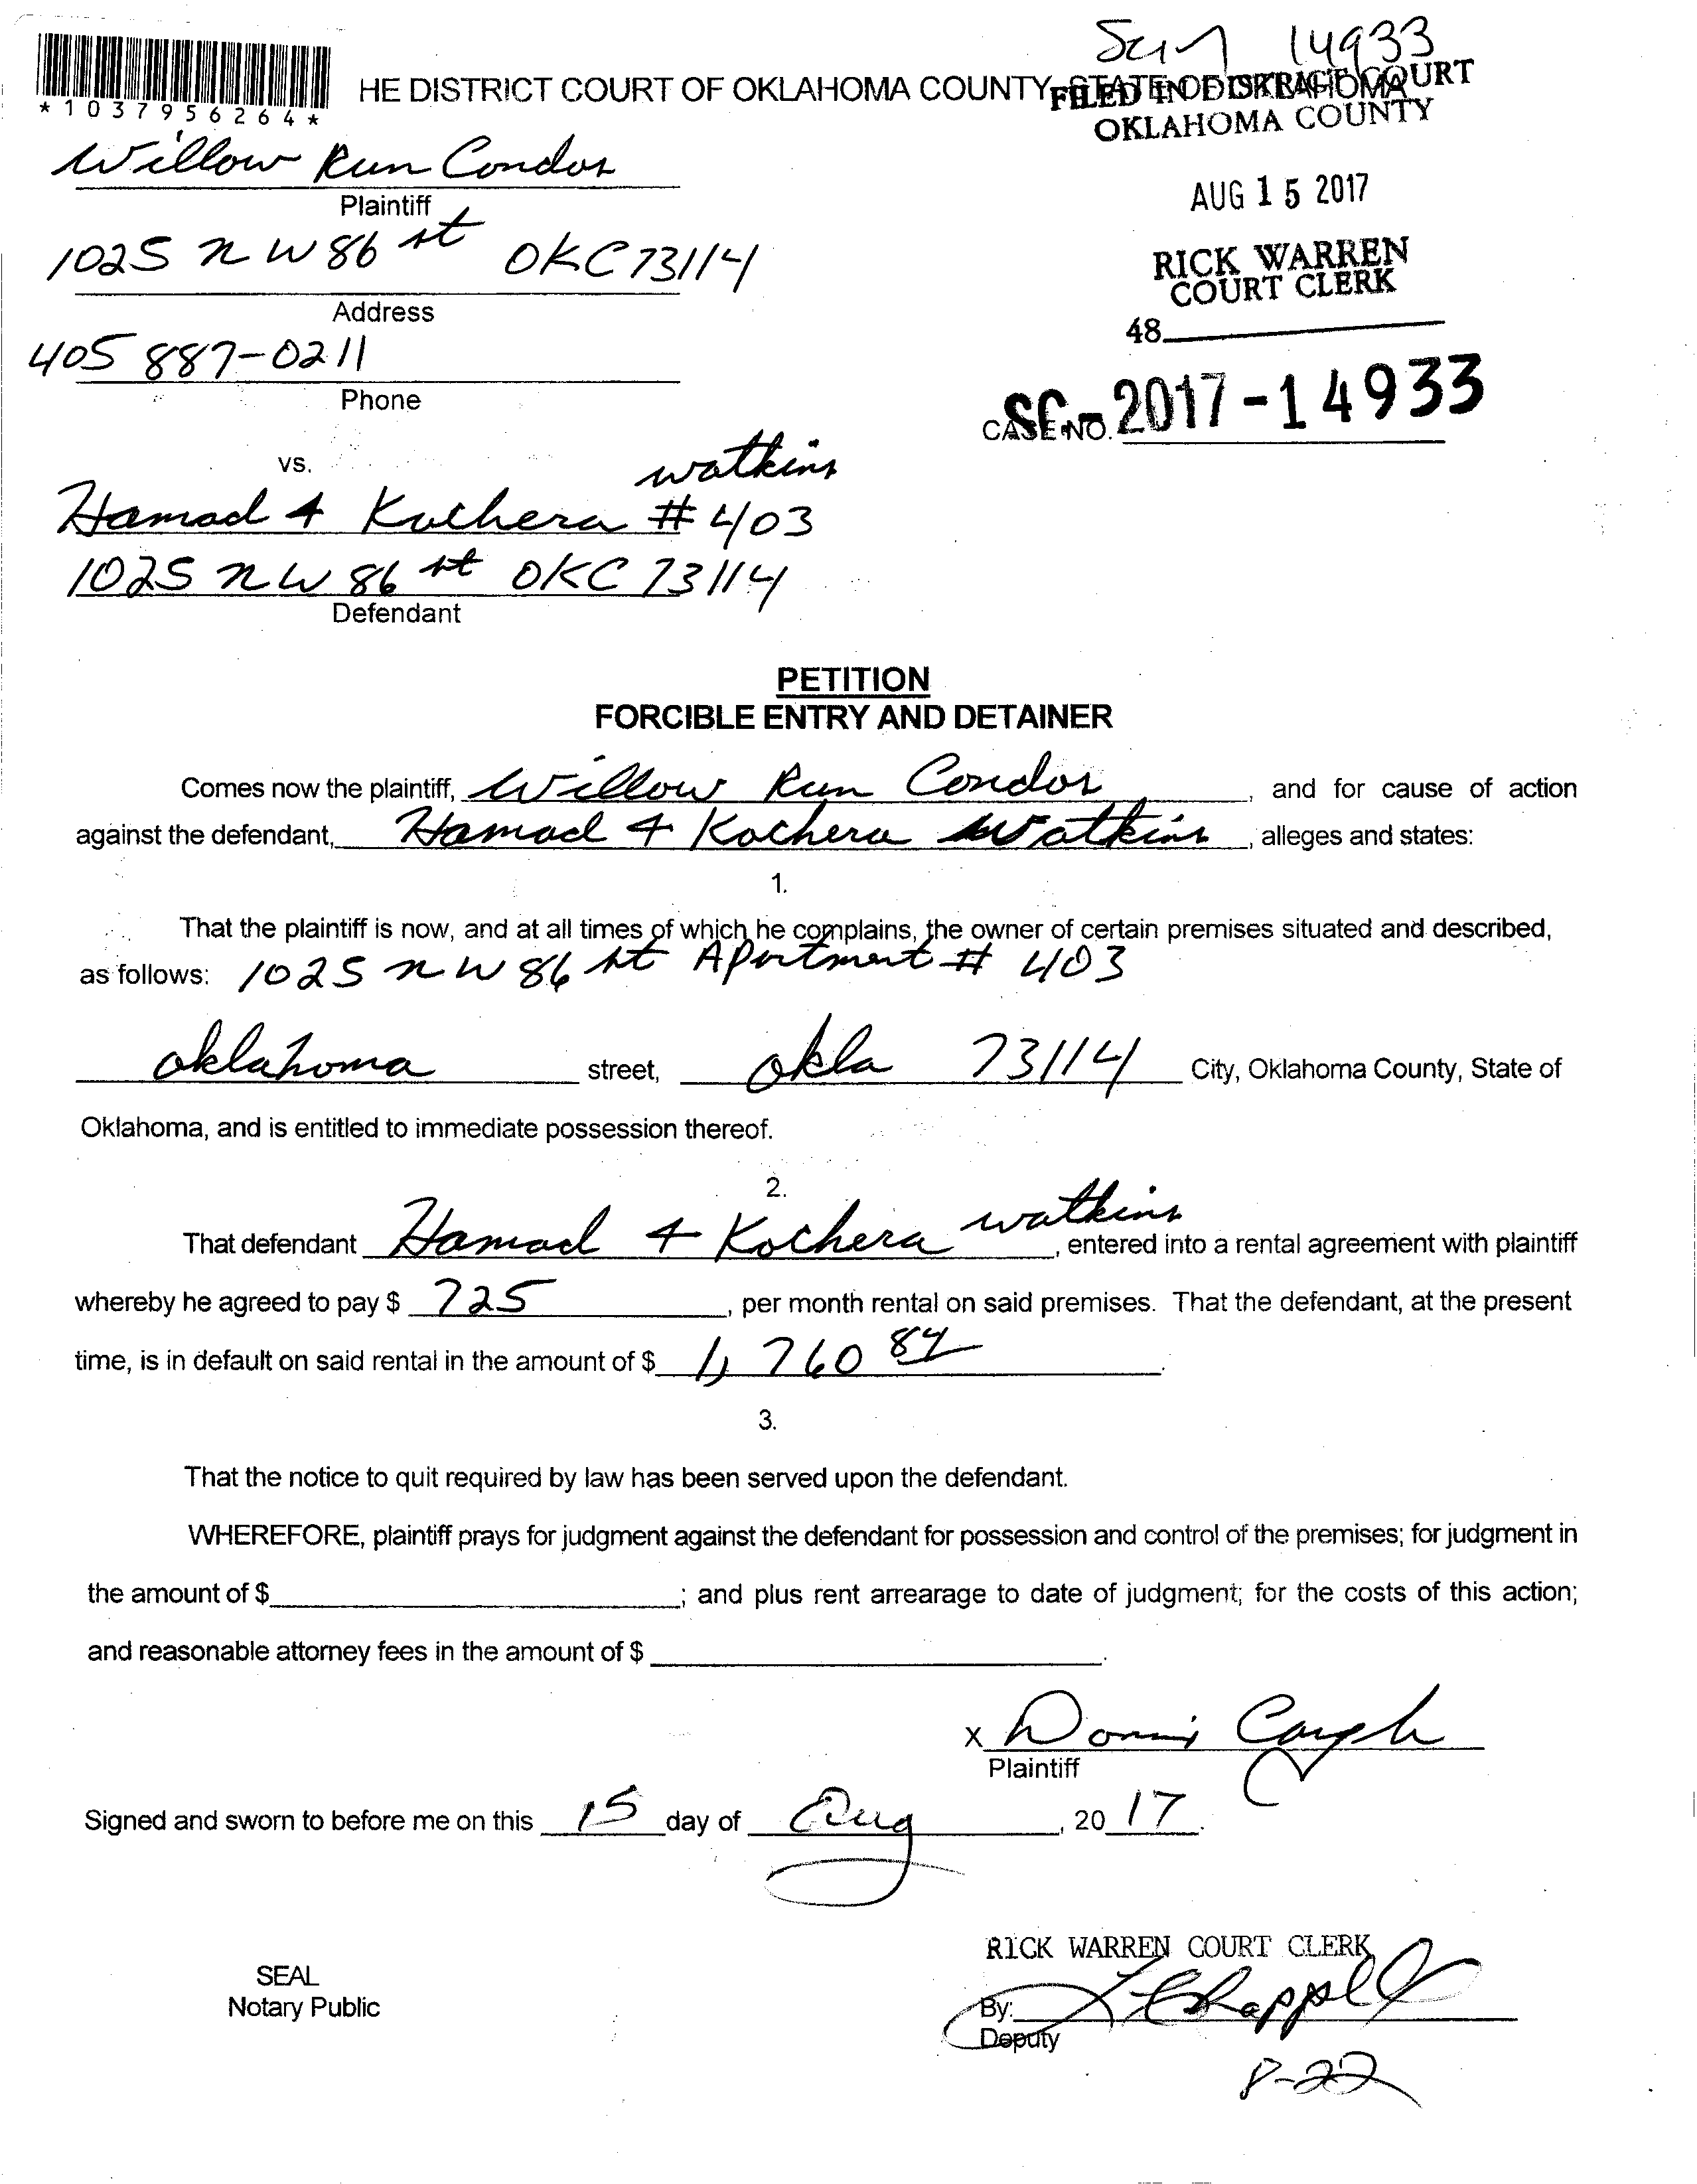 14933
*1037956264*
HE DISTRICT COURT OF OKLAHOMA COUNTY, STATE OF OKLAHOMA
FILED IN DISTRICT COURT
OKLAHOMA COUNTY
Willow Run Condos
Plaintiff
AUG 15 2017
1025 N W 86 st OKC 73114
Address
RICK WARREN
COURT CLERK
48
405 887-0211
Phone
CASE NO. SC-2017-14933
vs.
watkins
Hamad & Kochera #403
1025 N W 86 st OKC 73114
Defendant
PETITION
FORCIBLE ENTRY AND DETAINER
Comes now the plaintiff, Willow Run Condos, and for cause of action
against the defendant, Hamad & Kochera Watkins, alleges and states:
1.
That the plaintiff is now, and at all times of which he complains, the owner of certain premises situated and described,
as follows: 1025 N W 86 st Apartment # 403
oklahoma street, okla 73114 City, Oklahoma County, State of
Oklahoma, and is entitled to immediate possession thereof.
2.
That defendant Hamad & Kochera watkins, entered into a rental agreement with plaintiff
whereby he agreed to pay $ 725, per month rental on said premises. That the defendant, at the present
time, is in default on said rental in the amount of $ 1,760 84.
3.
That the notice to quit required by law has been served upon the defendant.
WHEREFORE, plaintiff prays for judgment against the defendant for possession and control of the premises; for judgment in
the amount of $ ; and plus rent arrearage to date of judgment; for the costs of this action;
and reasonable attorney fees in the amount of $ .
x
Plaintiff
Signed and sworn to before me on this 15 day of Aug, 20 17.
RICK WARREN COURT CLERK
SEAL
Notary Public
By: Chappell
Deputy
8-22